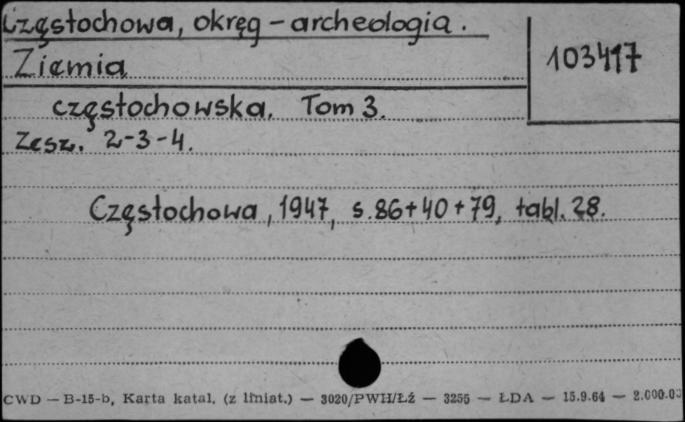 Częstochowa, okręg - archeologia.
103417
Ziemia
częstochowska. Tom 3.
Zesz. 2-3-4.
Częstochowa, 1947, s.86+40+79, tabl. 28.
CWD — B-15-b, Karta katal. (z liniat.) — 3020/PWH/Łź — 3255 — ŁDA — 15.9.64 — 2.000.0